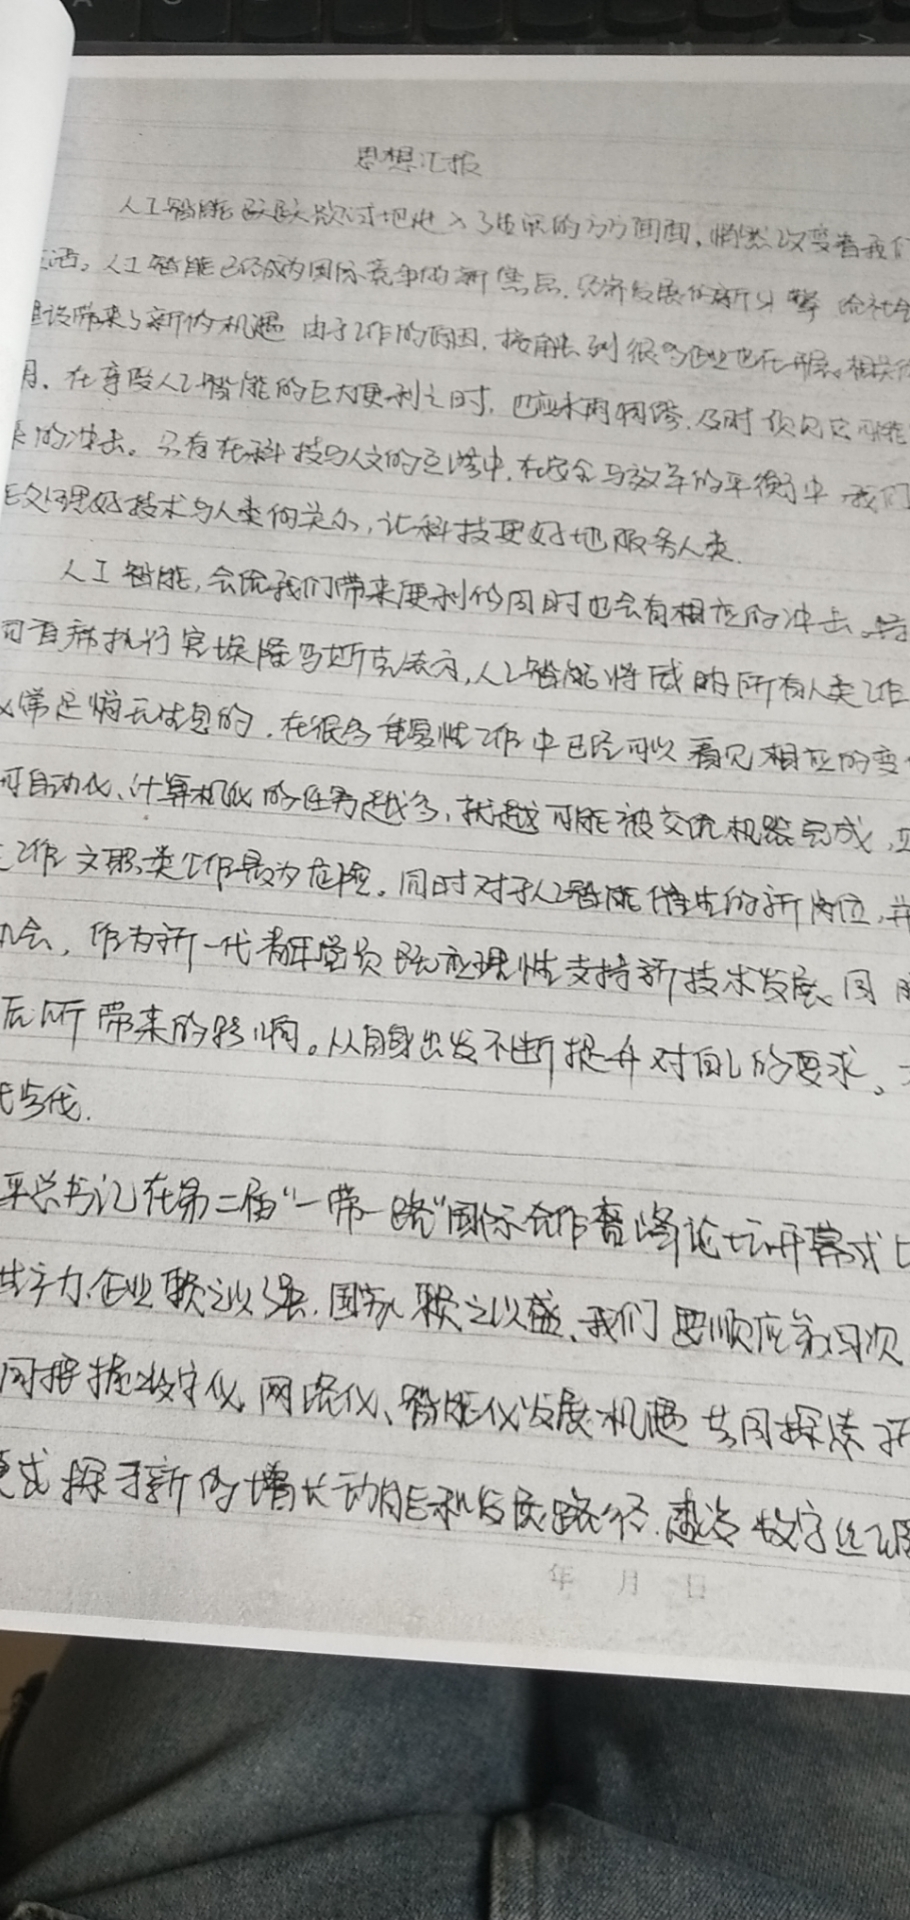 思想汇报
人工智能 地进入了生活的方方面面，悄然改变着我们
生活。人工智能已经成为国际竞争的新焦点，经济发展的新引擎 给社会
建设带来了新的机遇 由于工作的原因，接触到很多企业也在开展相关的
用。在享受人工智能的巨大便利之时，也应未雨绸缪，及时预见它可能
来的冲击。只有在科技与人文的 中，在安全与效率的平衡中 我们
处理好技术与人类的关系，让科技更好地服务人类
人工智能，会给我们带来便利的同时也会有相应的冲击。
司首席执行官埃隆马斯克表示，人工智能将威胁所有人类工作
常是悄无生息的，在很多重复性工作中已经可以看见相应的变化
可自动化、计算机化的任务越多，就越可能被交给机器完成，
工作 文职类工作最为危险。同时对于人工智能催生的新岗位，
机会，作为新一代青年党员 既应理性支持新技术发展、同
后所带来的影响。从自身出发不断提升对自己的要求。
平总书记在第二届“一带一路”国际合作高峰论坛开幕式上
企业联之以强，国家联之以盛、我们要顺应第四次
同把握数字化、网络化、智能化发展机遇 共同探索新
模式探寻新的增长动能和发展路径，建设数字丝绸
年 月 日